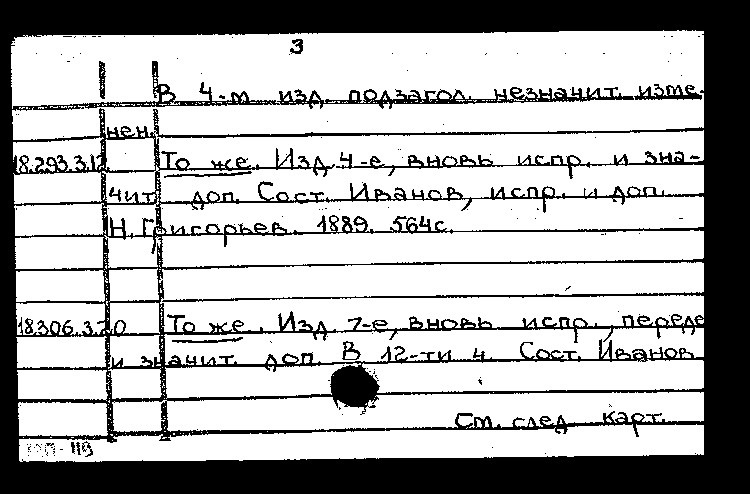 3
В 4-м изд. подзагол. незначит. изме-
нен.
18.293.3.12 То же. Изд. 4-е, вновь испр. и зна-
чит. доп. Сост. Иванов, испр. и доп.
Н. Григорьев. 1889. 564с.
18.306.3.20 То же. Изд. 7-е, вновь испр., переде
и значит. доп. В 12-ти ч. Сост. Иванов
См. след. карт.
119